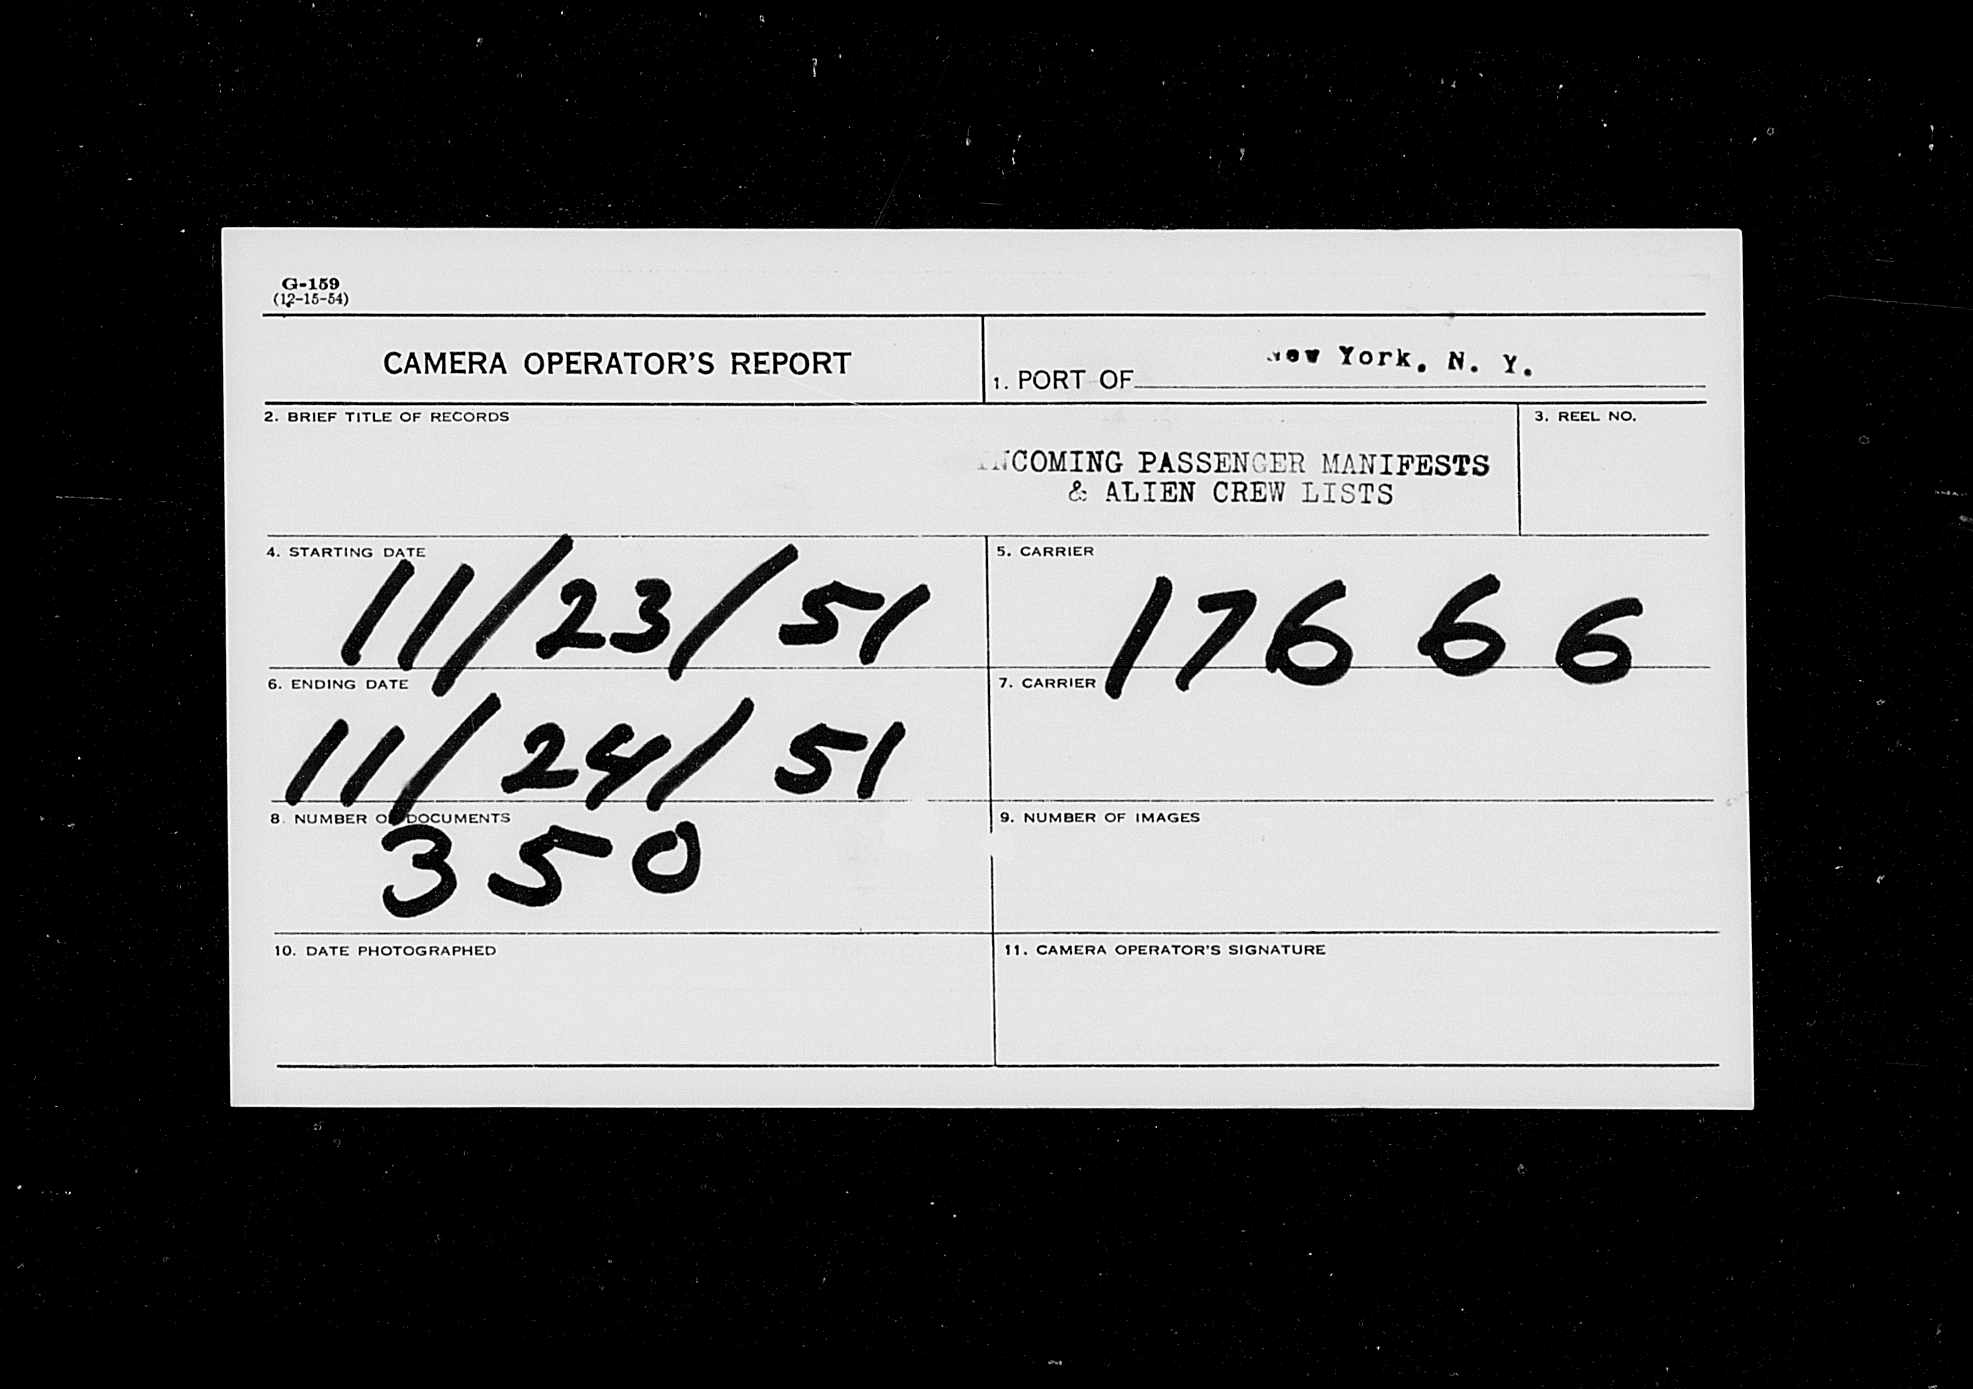 G-159
(12-15-54)
CAMERA OPERATOR'S REPORT
1. PORT OF New York, N. Y.
2. BRIEF TITLE OF RECORDS
INCOMING PASSENGER MANIFESTS
& ALIEN CREW LISTS
3. REEL NO.
4. STARTING DATE
11/23/51
5. CARRIER
17666
6. ENDING DATE
11/24/51
7. CARRIER
8. NUMBER OF DOCUMENTS
350
9. NUMBER OF IMAGES
10. DATE PHOTOGRAPHED
11. CAMERA OPERATOR'S SIGNATURE